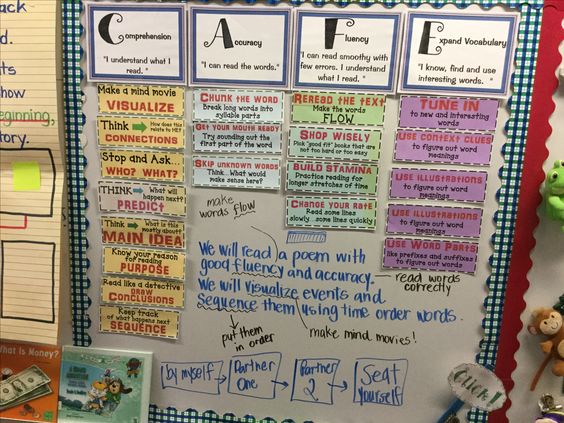 Comprehension
"I understand what I read."
Accuracy
"I can read the words."
Fluency
"I can read smoothly with few errors. I understand what I read."
Expand Vocabulary
"I know, find and use interesting words."
Make a mind movie
VISUALIZE
Think How does this relate to ME?
CONNECTIONS
Stop and Ask...
WHO? WHAT?
THINK What will happen next?
PREDICT
Think What is this mostly about?
MAIN IDEA
Know your reason for reading
PURPOSE
Read like a detective
DRAW CONCLUSIONS
Keep track of what happens next
SEQUENCE
CHUNK THE WORD
Break long words into
syllable parts
GET YOUR MOUTH READY
Try sounding out the
first part of the word
SKIP UNKNOWN WORDS
Think...What would
make sense here?
REREAD THE TEXT
Make the words
FLOW.
SHOP WISELY
Pick "good fit" books that are
not too hard or too easy
BUILD STAMINA
Practice reading for
longer stretches of time
CHANGE YOUR RATE
Read some lines
slowly...some lines quickly
TUNE IN
to new and interesting
words
USE CONTEXT CLUES
to figure out word
meanings
USE ILLUSTRATIONS
to figure out word
meanings
USE ILLUSTRATIONS
to figure out word
meanings
USE WORD PARTS
like prefixes and suffixes
to figure out words
make
words flow
We will read a poem with
good fluency and accuracy.
We will visualize events and
Sequence them using time order words.
read words
correctly
put them
in order
make mind movies!
by myself
Partner
One
Partner
2
Seat
Yourself
Click!
What Is Money?
and
d.
ts
how
eginning,
tory.